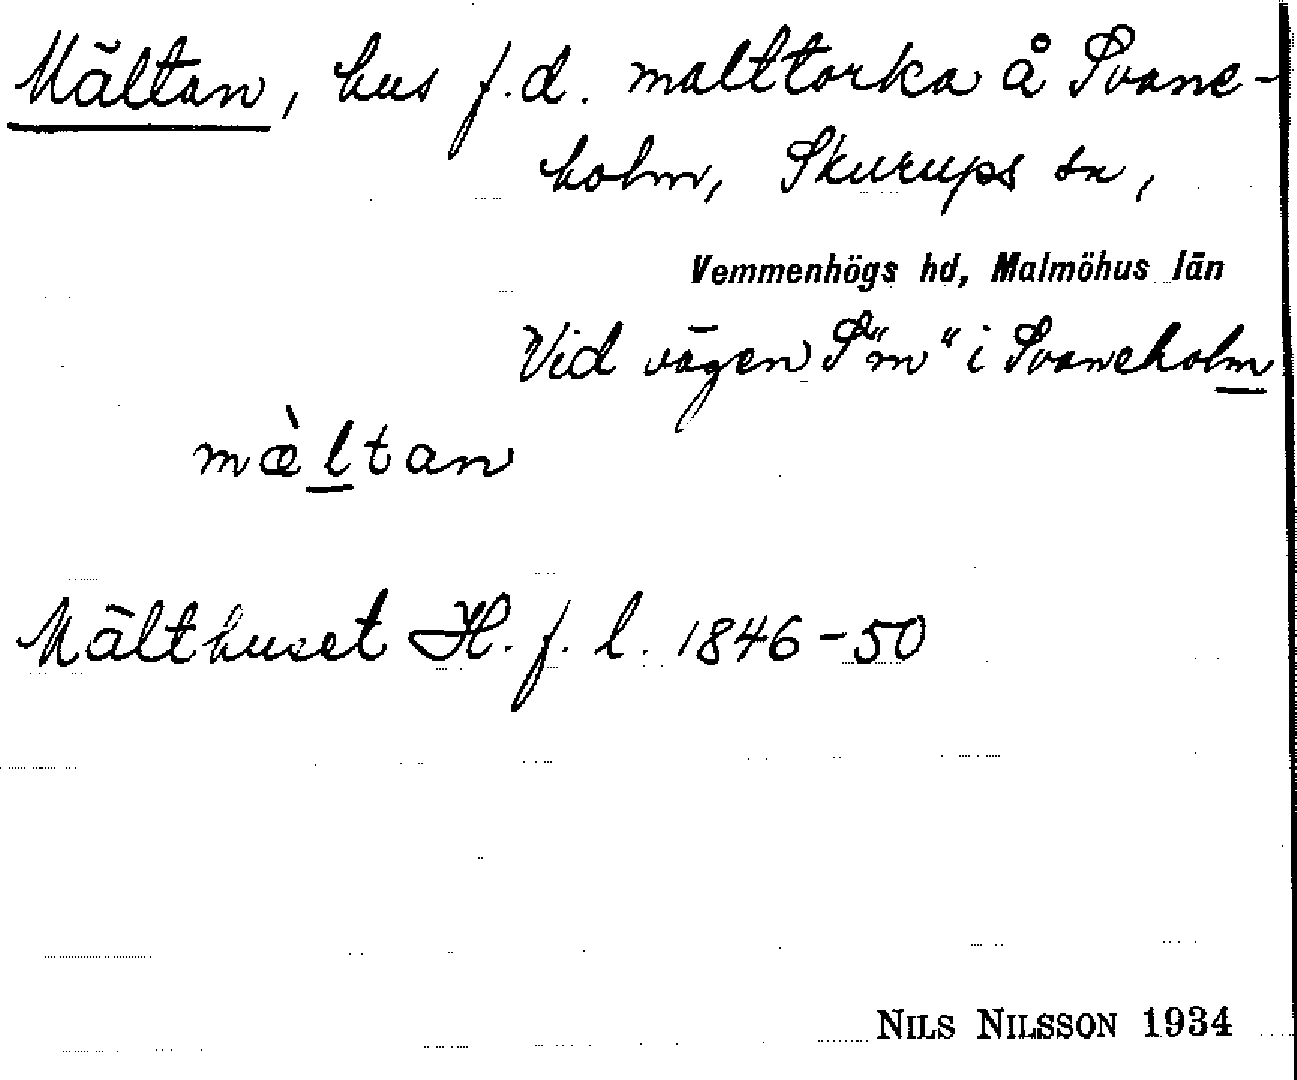 Mältan, hus f.d. malttorka å Svane-
holm, Skurups sn,
Vemmenhögs hd, Malmöhus län
Vid vägen S "m" i Svaneholm
mæ̀ltan
Mälthuset H. f. l. 1846-50
NILS NILSSON 1934